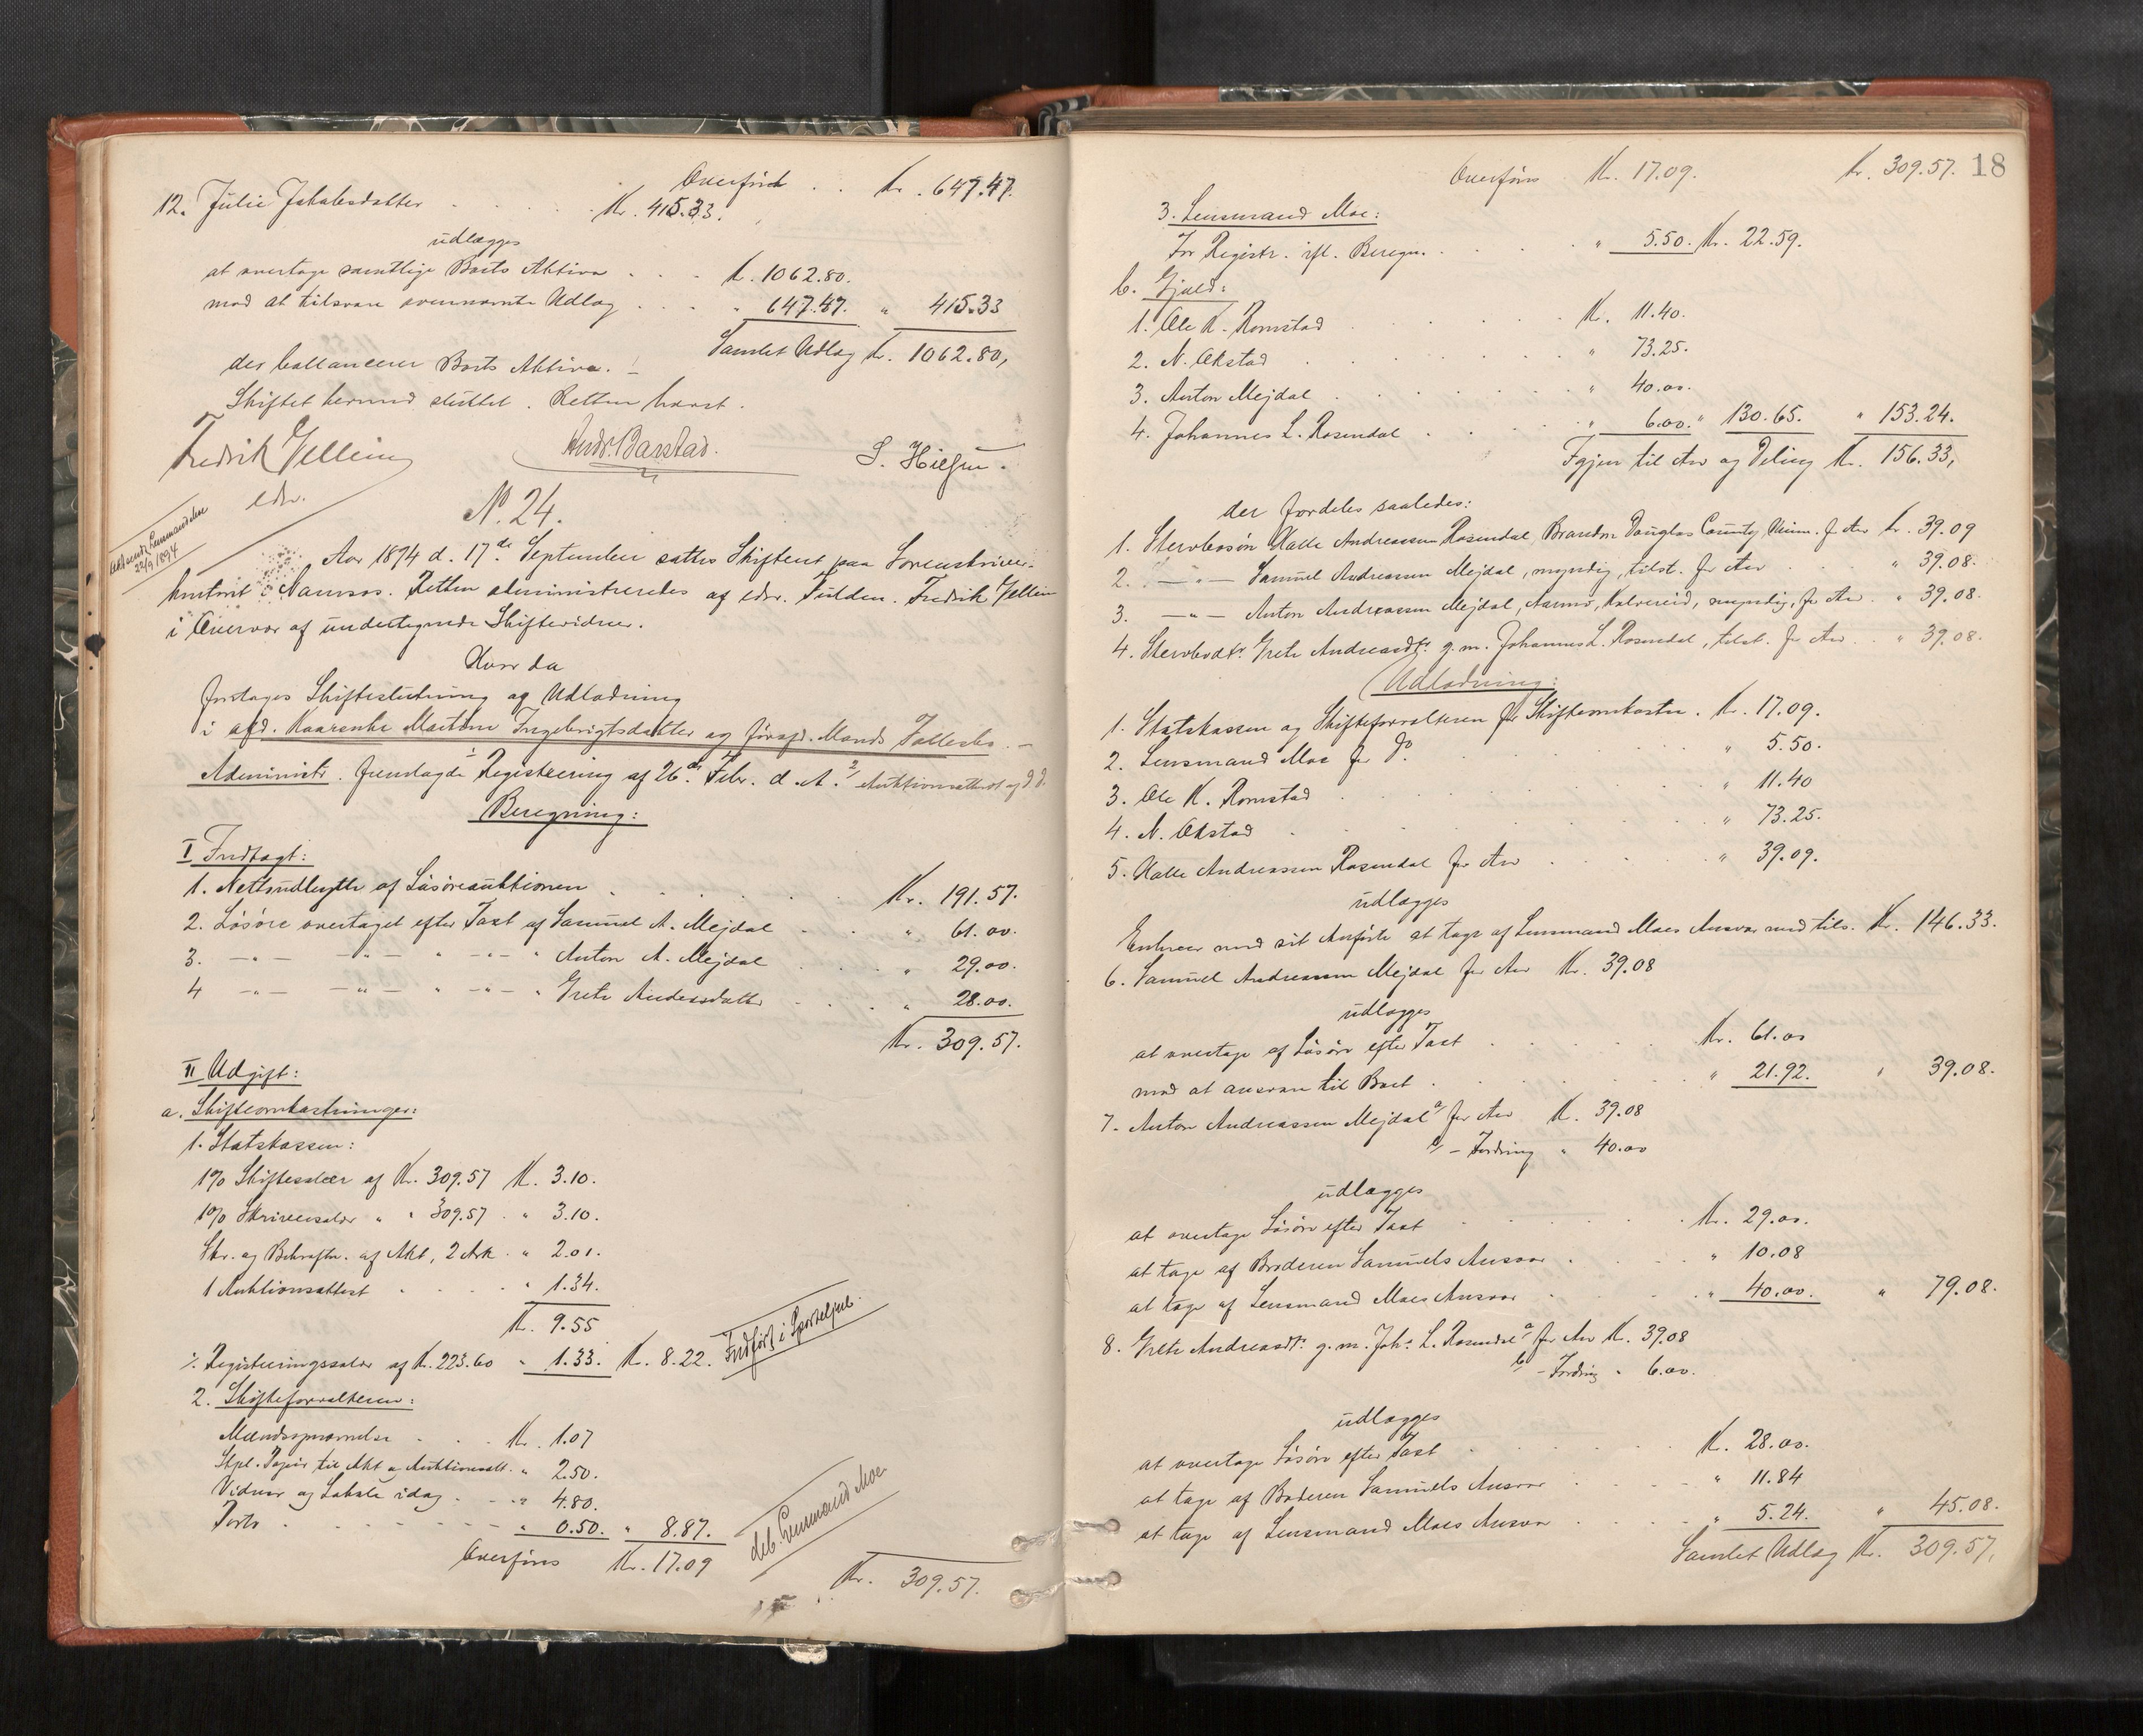 Overført . . Kr. 647.47.
12. Julie Jakobsdatter . . . . Kr. 415.33.
udlægges
at overtage samtlige Boets Aktiva . . . Kr. 1062.80.
mod at tilsvare ovennævnte Udlæg . . . " 647.47. " 415.33
Samlet Udlæg Kr. 1062.80,
der ballancerer Boets Aktiva. –
Skiftet hermed sluttet. Retten hævet.
Fredrik Gellein Andr. Barstad. S. Hielsen.
edsv.
22/9 1894
N. 24.
Aar 1894 d. 17de September sattes Skifteret paa Sorenskriver-
kontoret i Namsos. Retten administreredes af edsv. Fuldm. Fredrik Gellein
i Overvær af undertegnede Skiftevidner.
Hvor da
foretages Skifteslutning og Udlodning
i afd. Kaarenhe Martine Ingebrigtsdatter og føravd. Mands Fællesbo. –
Administr. fremlagde 1/ Registrering af 26de Febr. d. A. 2/ Auktionsattest af d. D.
Beregning:
I Indtægt:
1. Nettoudbytte af Løsøreauktionen . . . . Kr. 191.57.
2. Løsøre overtaget efter Taxt af Samuel A. Mejdal . . " 61.00.
3. –"– –"– " –"– " Anton A. Mejdal . . . " 29.00.
4 –"– –"– " –"– " Grete Andersdatter . . . " 28.00.
Kr. 309.57.
II Udgift:
a. Skifteomkostninger:
1. Statskassen:
1% Skiftesalær af Kr. 309.57 Kr. 3.10.
1% Skriversalær " " 309.57 . " 3.10.
Skr. og Bekræftn. af Akt, 2 Ark . " 2.01.
1 Auktionsattest . . . . " 1.34.
Kr. 9.55
÷ Registreringssalær af Kr. 223.60 " 1.33. Kr. 8.22. Indført i Sporteljourl.
2. Skifteforvalteren:
Mændsopnævnelse . . . Kr. 1.07
Stpl. Papir til Akt og Auktionsatt. " 2.50.
Vidner og Lokale idag . . . " 4.80.
Porto . . . . . . " 0.50. " 8.87. deb. Lensmand Moe
Overføres Kr. 17.09 Kr. 309.57.
Overføres Kr. 17.09. Kr. 309.57. 18
3. Lensmand Moe:
For Registr. ifl. Beregn. . . . . " 5.50. Kr. 22.59.
b. Gjæld:
1. Ole K. Romstad . . . . . Kr. 11.40.
2. N. Okstad . . . . . . " 73.25.
3. Anton Mejdal . . . . . " 40.00.
4. Johannes L. Rosendal . . . . " 6.00. " 130.65. " 153.24.
Igjen til Arv og Deling Kr. 156.33,
der fordeles saaledes:
1. Stervbosøn Halle Andreassen Rosendal, Brandon Douglas County Minn. f. Arv Kr. 39.09
2. –"– Samuel Andreassen Mejdal, myndig, tilst. for Arv . . . " 39.08.
3. –"– Anton Andreassen Mejdal, Aarmo, Kolvereid, myndig, for Arv . " 39.08.
4. Stervbodtr. Grete Andreasdtr. g. m. Johannes L. Rosendal, tilst. for Arv . . " 39.08.
Udlodning:
1. Statskassen og Skifteforvalteren for Skifteomkostn. Kr. 17.09.
2. Lensmand Moe for Do . . . . . " 5.50.
3. Ole K. Romstad . . . . . . " 11.40
4. N. Okstad . . . . . . " 73.25.
5. Halle Andreassen Rosendal for Arv . . . . " 39.09.
udlægges
Enhver med sit Anførte at tage af Lensmand Moes Ansvar med tils. Kr. 146.33.
6. Samuel Andreassen Mejdal for Arv Kr. 39.08
udlægges
at overtage af Løsøre efter Taxt . . . . Kr. 61.00
mod at ansvare til Boet . . . . . " 21.92. " 39.08.
7. Anton Andreassen Mejdal a/ for Arv Kr. 39.08
b/ – Fordring " 40.00
udlægges
at overtage Løsøre efter Taxt . . . . Kr. 29.00.
at tage af Broderen Samuels Ansvar . . . " 10.08
at tage af Lensmand Moes Ansvar . . . " 40.00. " 79.08.
8. Grete Andreasdtr. g. m. Johs. L. Rosendal a/ for Arv Kr. 39.08
b/ – Fordring " 6.00.
udlægges
at overtage Løsøre efter Taxt . . . . Kr. 28.00.
at tage af Broderen Samuels Ansvar . . . " 11.84
at tage af Lensmand Moes Ansvar . . . " 5.24. " 45.08.
Samlet Udlæg Kr. 309.57,